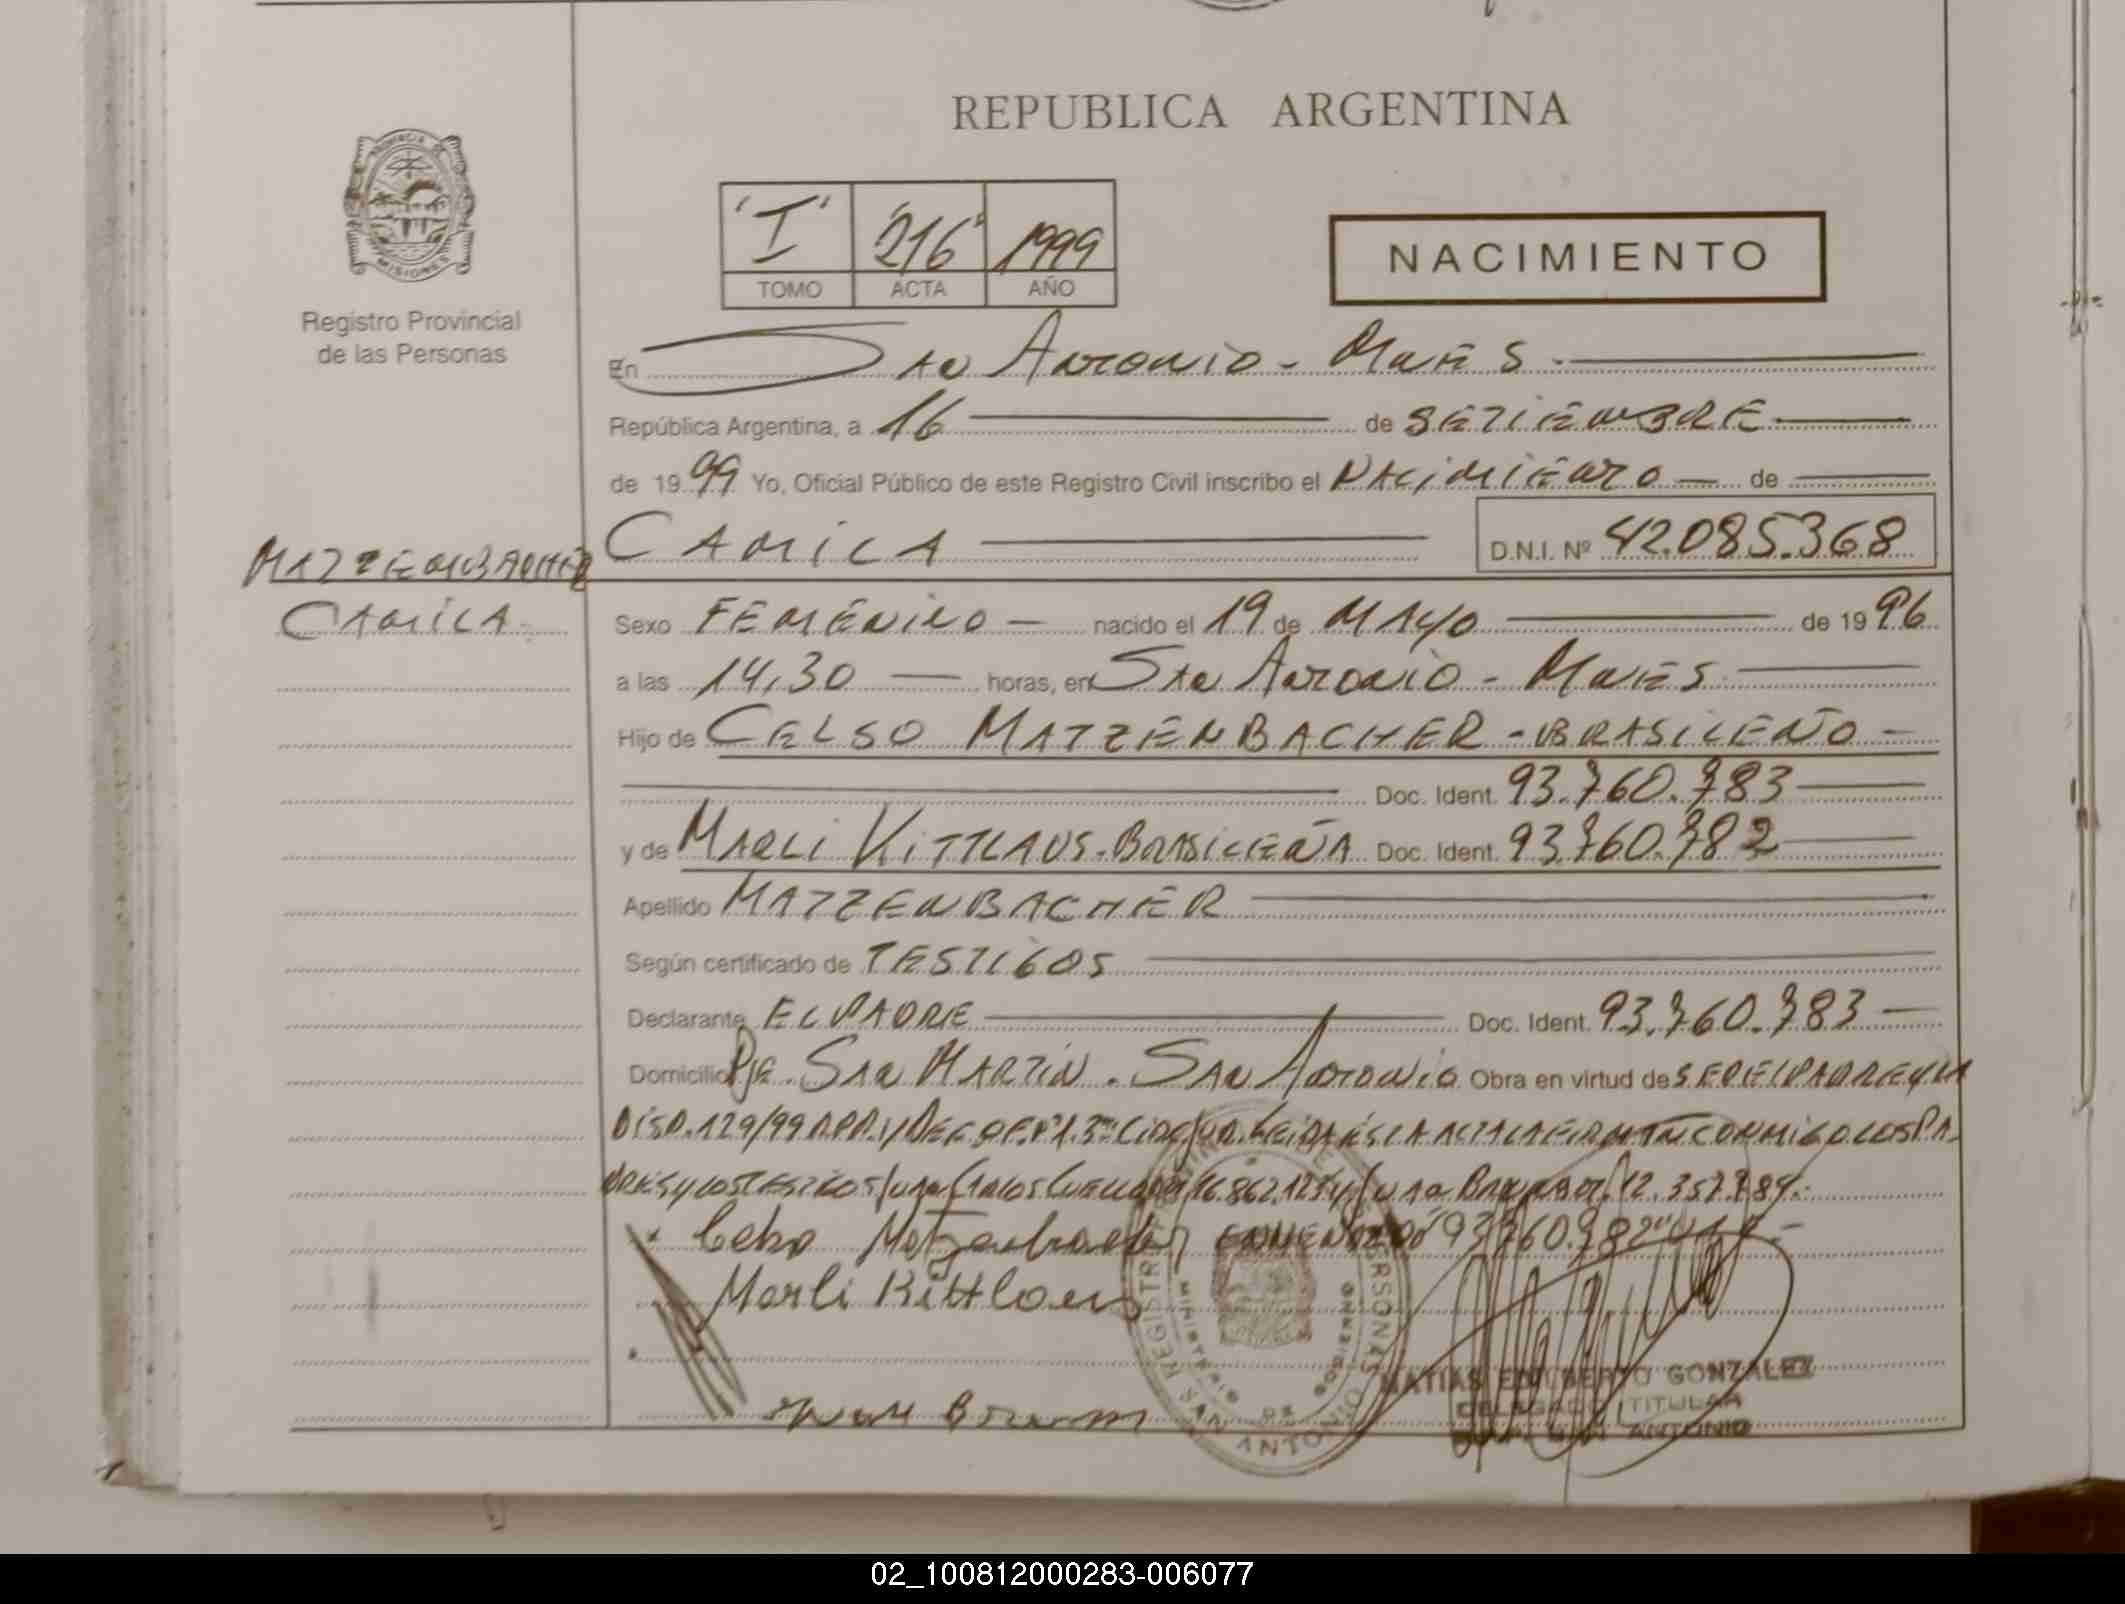 REPUBLICA ARGENTINA
PROVINCIA DE
MISIONES
Registro Provincial
de las Personas
"I" "216" 1999
TOMO ACTA AÑO
NACIMIENTO
En San Antonio - Mnes.
República Argentina, a 16 de SETIEMBRE
de 1999 Yo, Oficial Público de este Registro Civil inscribo el NACIMIENTO de
CAMILA D.N.I. Nº 42.085.368
MATZENBACHER
CAMILA
Sexo FEMENINO nacido el 19 de MAYO de 1996
a las 14,30 horas, en San Antonio - Mnes
Hijo de CELSO MATZENBACHER - BRASILEÑO -
Doc. Ident. 93.760.783
y de MARLI KITTLAUS - BRASILEÑA Doc. Ident. 93.760.782
Apellido MATZENBACHER
Según certificado de TESTIGOS
Declarante EL PADRE Doc. Ident. 93.760.783
Domicilio Pje. San Martin. San Antonio Obra en virtud de SER EL PADRE Y LA
DISP. 129/99 LEIDA ES LA ACTA LA FIRMAN CONMIGO LOS PA-
DRES Y LOS TESTIGOS Juan Carlos 12.357.784.-
Celso Matzenbacher ENMENDADO "93.760.782" VALE.-
Marli Kittlaus
MATIAS EDILBERTO GONZALEZ
DELEGADO TITULAR
SAN ANTONIO
02_100812000283-006077